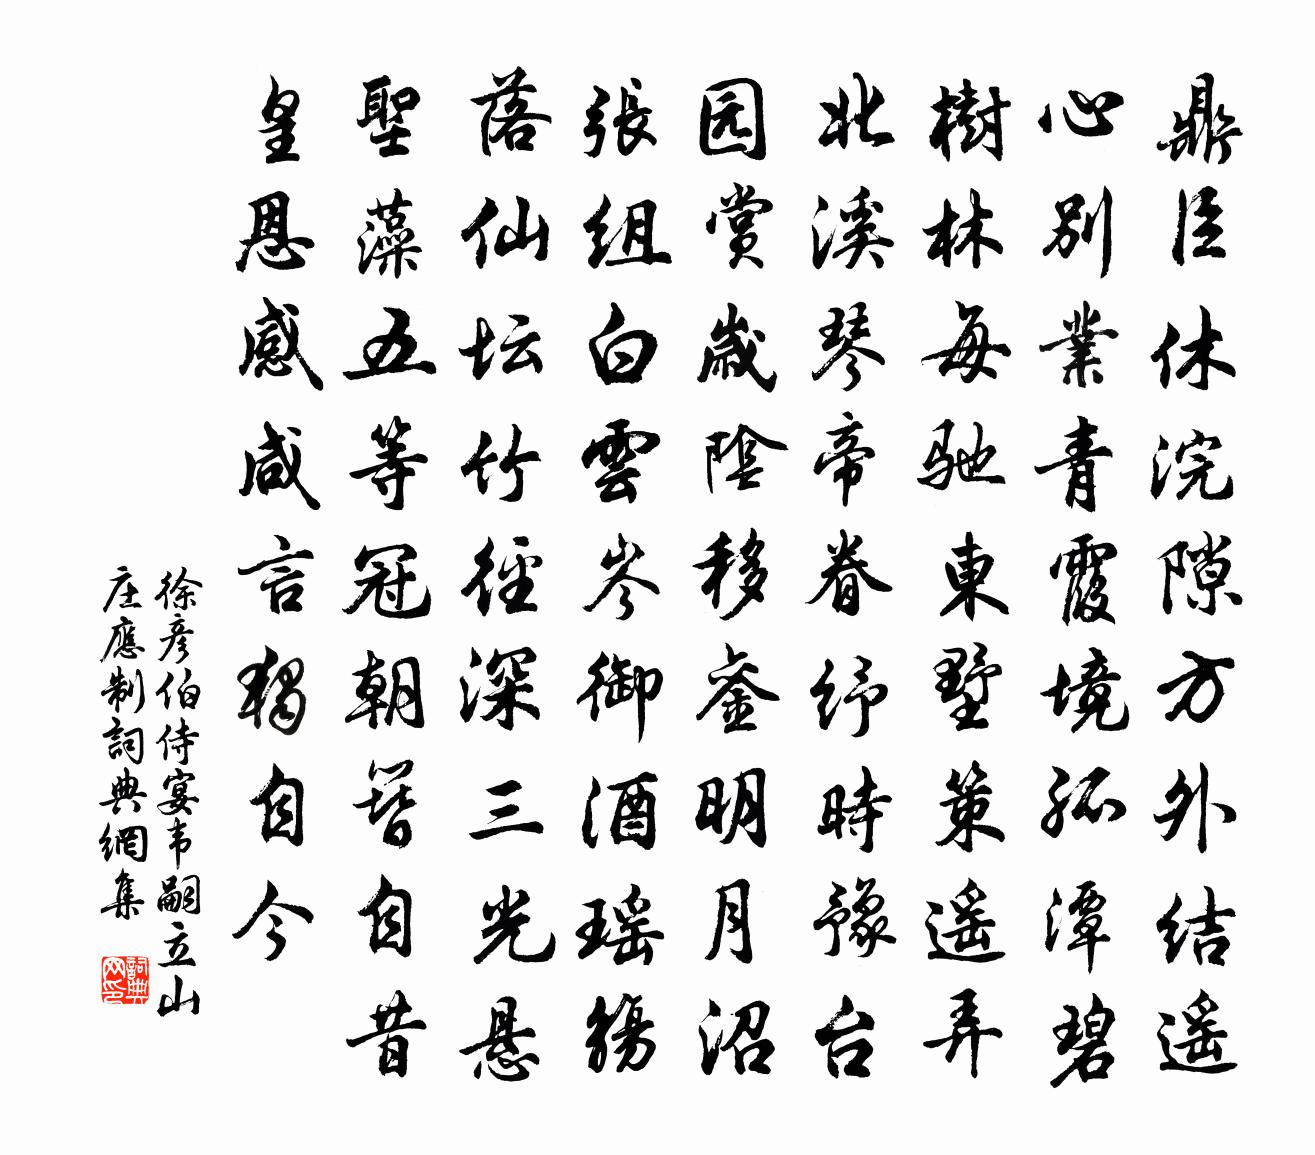 鼎臣休浣隙方外结遥
心别業青霞境孤潭碧
樹林每驰東墅策遥弄
北溪琴帝眷纾時豫台
园赏歲陰移銮明月沼
張组白雲岑御酒瑶觞
落仙坛竹徑深三光悬
聖藻五等冠朝簪自昔
皇恩感咸言獨自今
徐彦伯侍宴韦嗣立山
庄應制詞典網集
詞典网印